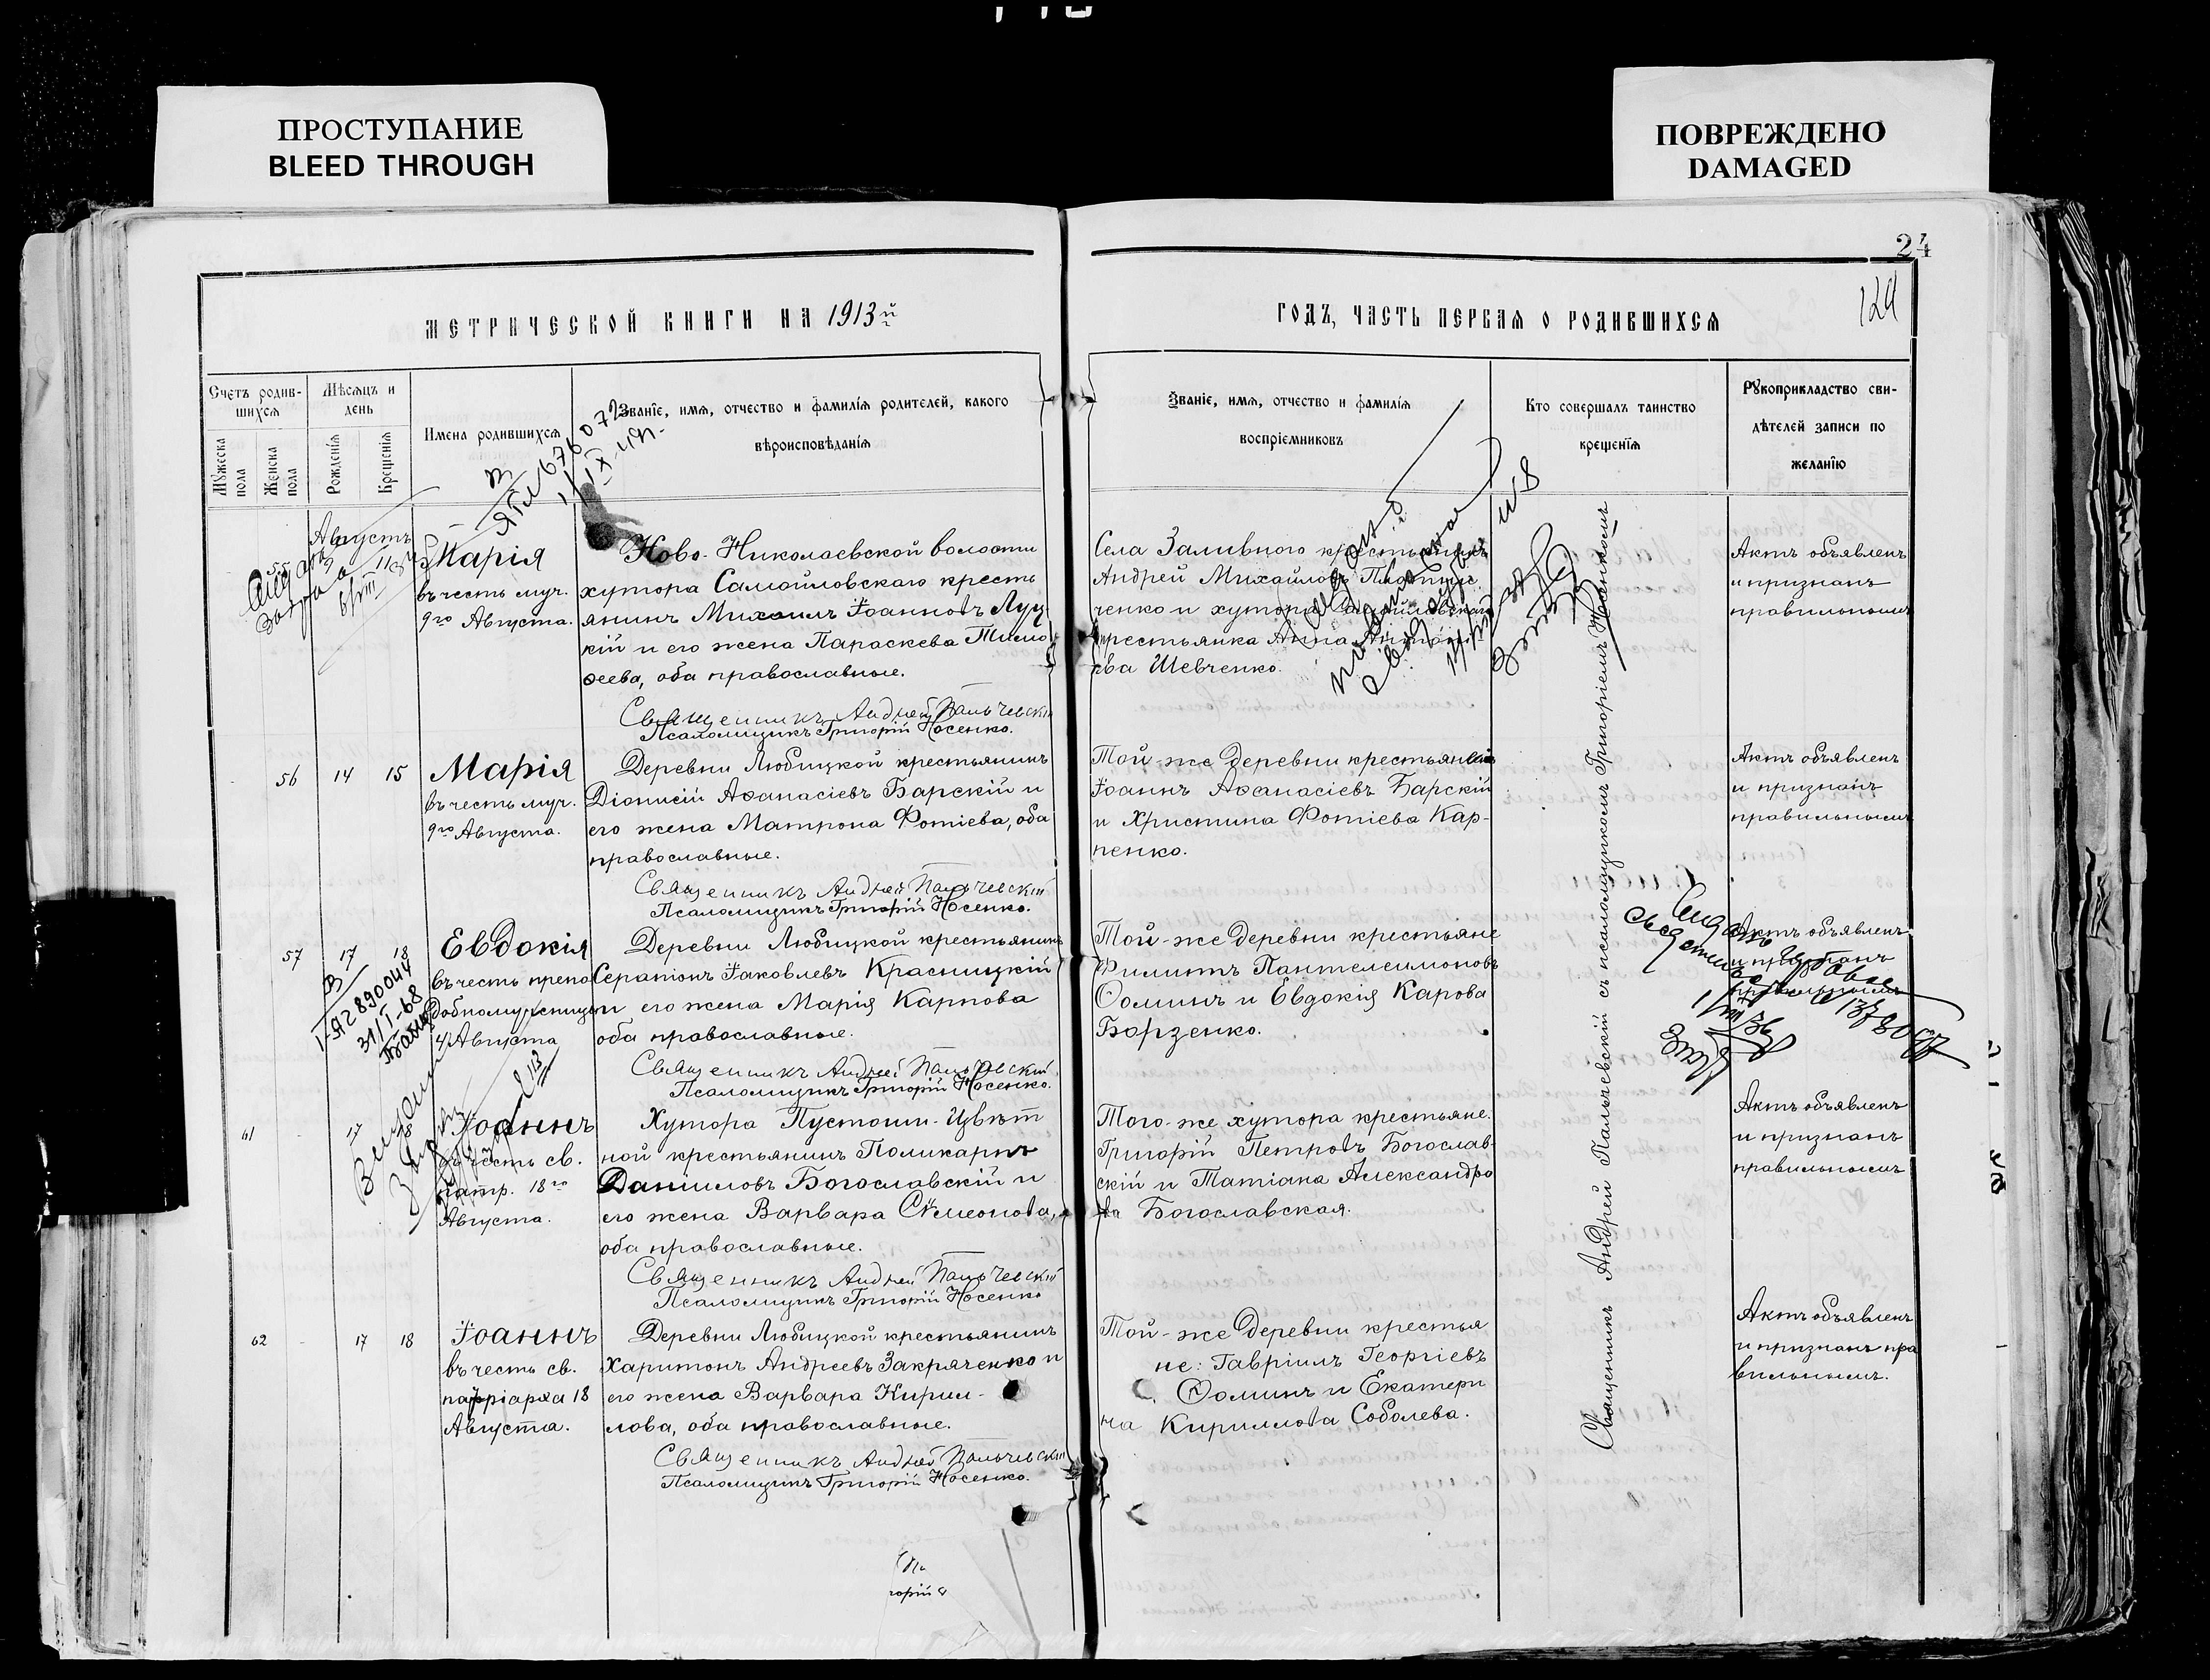 ПРОСТУПАНИЕ
BLEED THROUGH
ПОВРЕЖДЕНО
DAMAGED
24
124
МЕТРИЧЕСКОЙ КНИГИ НА 1913й
ГОДЪ, ЧАСТЬ ПЕРВАЯ О РОДИВШИХСЯ
Счетъ родив-
шихся
Мѹжеска пола
Женска пола
Мѣсяцъ и
день
Рожденія
Крещенія
Имена родившихся
Званіе, имя, отчество и фамилія родителей, какого
вѣроисповѣданія
Званіе, имя, отчество и фамилія
воспріемниковъ
Кто совершалъ таинство
крещенія
Рѹкоприкладство сви-
дѣтелей записи по
желанію
55
Августъ
9
11
Марія
въ честь муч.
9го Августа.
Ново-Николаевской волости
хутора Самойловскаго кресть
янинъ Михаилъ Іоанновъ Луц-
кій и его жена Параскева Тимо
ѳеева, оба православные.
Священникъ Андрей Пальчевскій
Псаломщикъ Григорій Носенко.
Села Заливного крестьянинъ
Андрей Михайловъ
ченко и хутора Самойловскаго
крестьянка Анна
ева Шевченко.
Актъ объявленъ
и признанъ
правильнымъ
56
14
15
Марія
въ честь муч.
9го Августа.
Деревни Любицкой крестьянинъ
Діонисій Аѳанасіевъ Барскій и
его жена Матрона Фотіева, оба
православные.
Священникъ Андрей Пальчевскій
Псаломщикъ Григорій Носенко.
Той-же деревни крестьянинъ
Іоаннъ Аѳанасіевъ Барскій
и Христина Фотіева Кар-
пенко.
Актъ объявленъ
и признанъ
правильнымъ
57
17
18
Евдокія
въ честь препо
добномученицы
4 Августа
Деревни Любицкой крестьянинъ
Серапіонъ Іаковлевъ Красницкій
и его жена Марія Карпова
оба православные.
Священникъ Андрей Пальчевскій
Псаломщикъ Григорій Носенко.
Той-же деревни крестьяне
Филиппъ Пантелеимоновъ
Ѳоминъ и Евдокія Карова
Борзенко.
Актъ объявленъ
и признанъ
правильнымъ
61
17
18
Іоаннъ
въ честь св.
патр. 18го
Августа.
Хутора Пустоши-Цвѣт
ной крестьянинъ Поликарпъ
Даниловъ Богославскій и
его жена Варвара Сѵмеонова,
оба православные.
Священникъ Андрей Пальчевскій
Псаломщикъ Григорій Носенко
Того-же хутора крестьяне.
Григорій Петровъ Богослав-
скій и Татіана Александро
ва Богославская.
Актъ объявленъ
и признанъ
правильнымъ
62
17
18
Іоаннъ
въ честь св.
патріарха 18
Августа.
Деревни Любицкой крестьянинъ
Харитонъ Андреевъ Закряченко и
его жена Варвара Кирил-
лова, оба православные.
Священникъ Андрей Пальчевскій
Псаломщикъ Григорій Носенко.
Той-же деревни крестья
не: Гавріилъ Георгіевъ
Ѳоминъ и Екатери
на Кириллова Соболева.
Актъ объявленъ
и признанъ пра
вильнымъ.
Священникъ Андрей Пальчевскій съ псаломщикомъ Григоріемъ Носенкомъ
горій